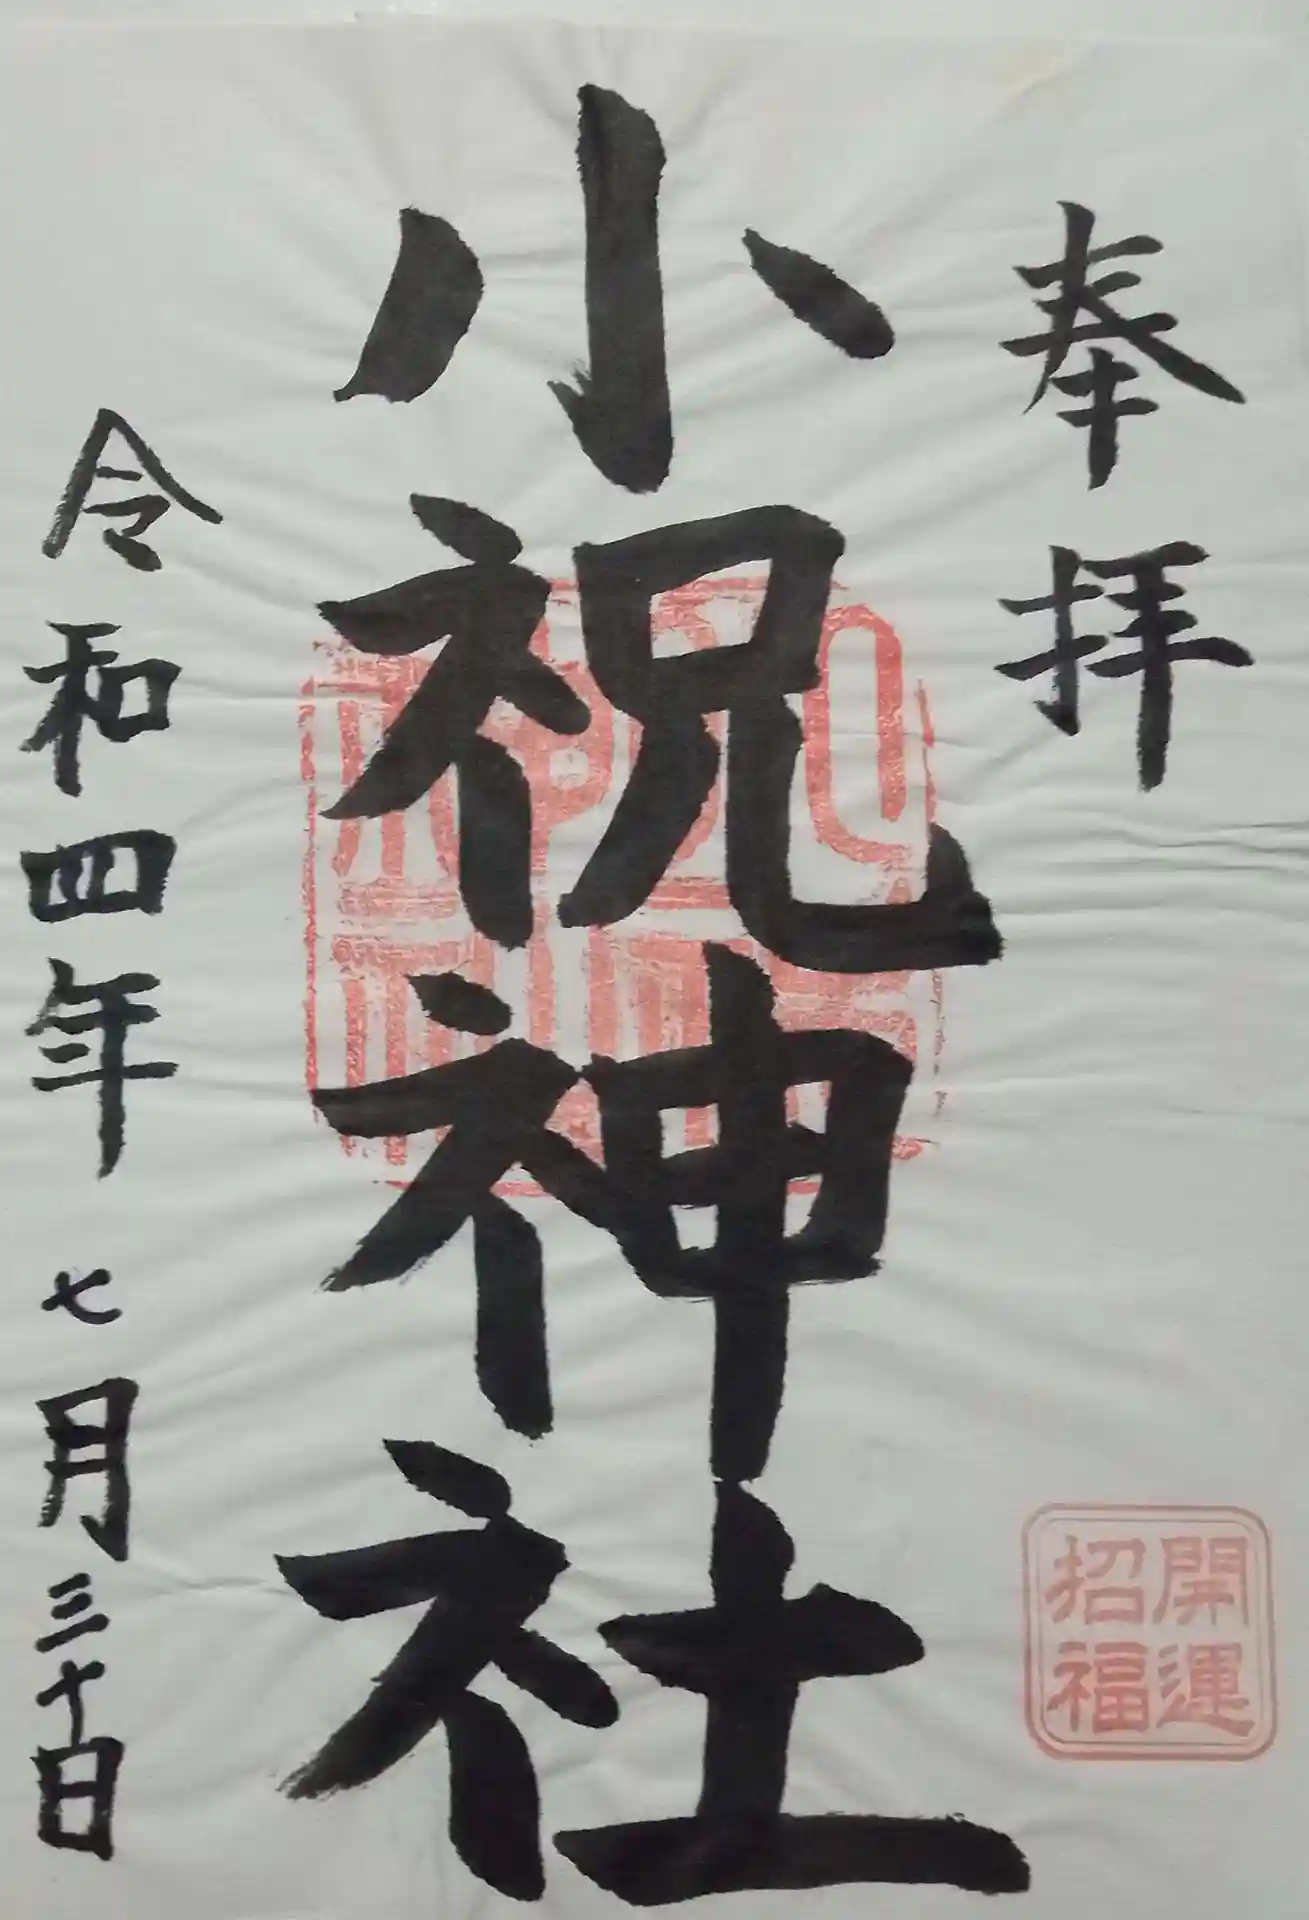 奉拝
開運
招福
小祝神社
令和四年 七月三十日